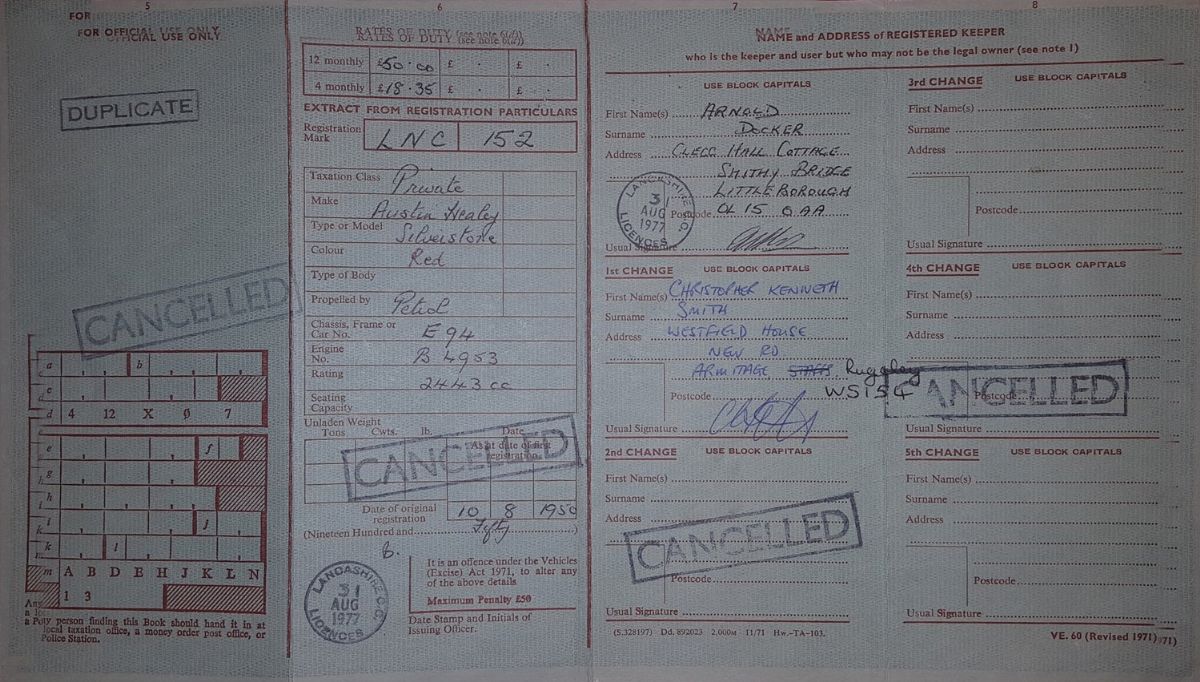 5
FOR
FOR OFFICIAL USE ONLY
DUPLICATE
CANCELLED
a b
c
d 4 12 X 0 7
e f
g
h
i j
k l
m A B D E H J K L N
1 3
Any person finding this Book should hand it in at
a local taxation office, a money order post office, or
Police Station.
6
RATES OF DUTY (see note 6(d))
12 monthly £50·00 £ · £ ·
4 monthly £18·35 £ · £ ·
EXTRACT FROM REGISTRATION PARTICULARS
Registration Mark LNC 152
Taxation Class Private
Make Austin Healey
Type or Model Silverstone
Colour Red
Type of Body
Propelled by Petrol
Chassis, Frame or Car No. E 94
Engine No. B 4953
Rating 2443 cc
Seating Capacity
Unladen Weight
Tons Cwts. lb. Date
As at date of first registration
CANCELLED
Date of original registration 10 8 1950
(Nineteen Hundred and Fifty)
6.
LANCASHIRE C.C.
31
AUG
1977
LICENCES
It is an offence under the Vehicles
(Excise) Act 1971, to alter any
of the above details
Maximum Penalty £50
Date Stamp and Initials of
Issuing Officer.
7
NAME and ADDRESS of REGISTERED KEEPER
who is the keeper and user but who may not be the legal owner (see note 1)
USE BLOCK CAPITALS
First Name(s) ARNOLD
Surname DOCKER
Address CLEGG HALL COTTAGE
SMITHY BRIDGE
LITTLEBOROUGH
Postcode OL15 0AA
LANCASHIRE C.C.
31
AUG
1977
LICENCES
Usual Signature
1st CHANGE USE BLOCK CAPITALS
First Name(s) CHRISTOPHER KENNETH
Surname SMITH
Address WESTFIELD HOUSE
NEW RD
ARMITAGE STAFFS Rugeley
Postcode WS15 4
Usual Signature
2nd CHANGE USE BLOCK CAPITALS
First Name(s)
Surname
Address
CANCELLED
Postcode
Usual Signature
(S.328197) Dd. 892023 2,000m 11/71 Hw.-TA-103.
8
3rd CHANGE USE BLOCK CAPITALS
First Name(s)
Surname
Address
Postcode
Usual Signature
4th CHANGE USE BLOCK CAPITALS
First Name(s)
Surname
Address
CANCELLED
Postcode
Usual Signature
5th CHANGE USE BLOCK CAPITALS
First Name(s)
Surname
Address
Postcode
Usual Signature
VE. 60 (Revised 1971)